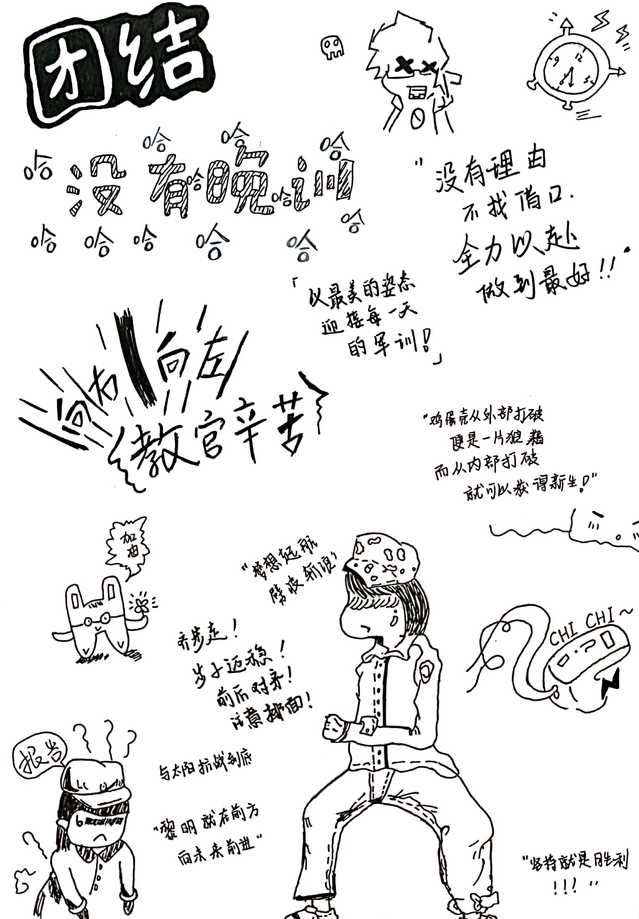 团结
哈 哈 哈 哈
没有晚训
哈 哈
哈 哈 哈 哈 哈 哈
"没有理由
不找借口
全力以赴
做到最好!!"
「以最美的姿态
迎接每一天
的军训!」
向右 向左
教官辛苦
"鸡蛋壳从外部打破
便是一片狼藉
而从内部打破
就可以获得新生!"
加油
"梦想起航
劈波斩浪"
齐步走!
步子迈稳!
前后对齐!
注意排面!
CHI CHI~
报告
与太阳抗战到底
"黎明就在前方
向未来前进"
"坚持就是胜利
!!!"